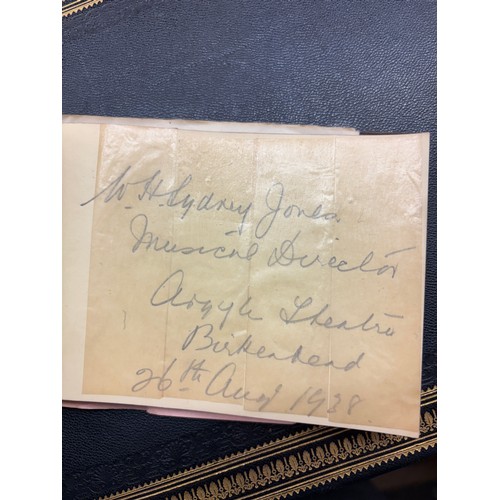 W. H. Sydney Jones.
Musical Director
Argyle Theatre
Birkenhead
26th Augt 1938.